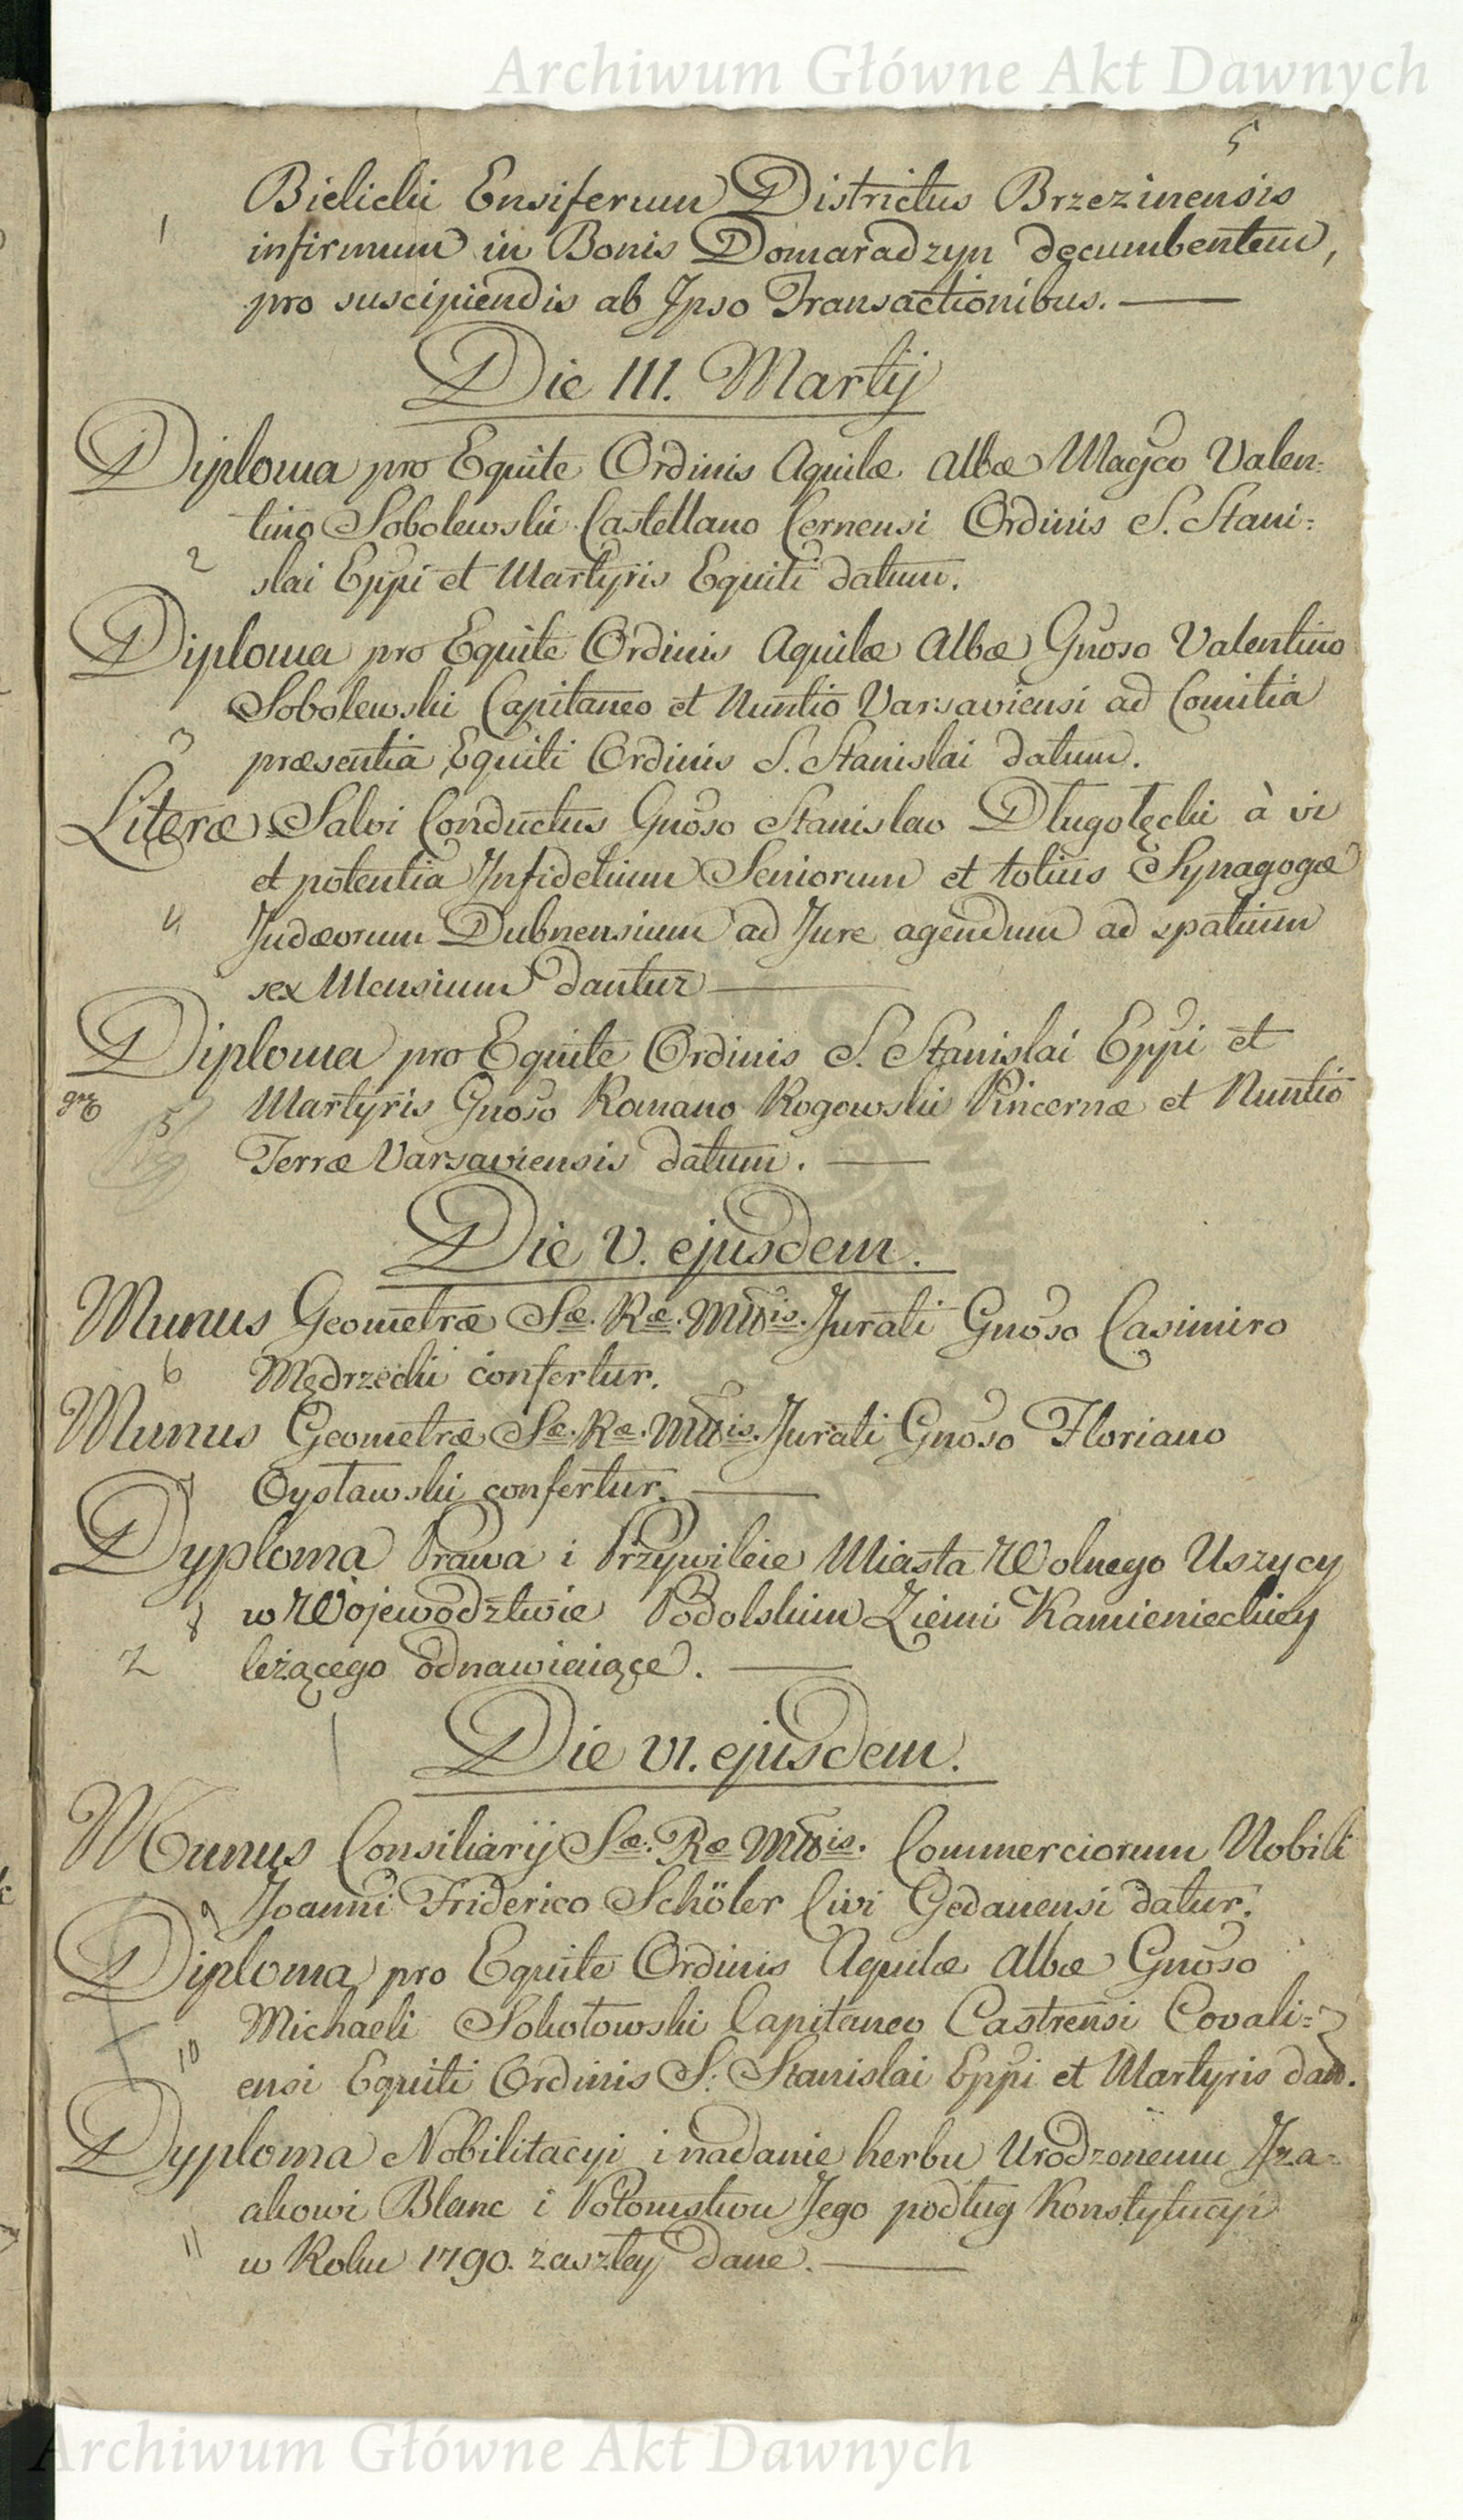 Archiwum Główne Akt Dawnych
5
Bielicki Ensiferum Districtus Brzezinensis
1
infirmum in Bonis Domaradzyn decumbentem,
pro suscipiendis ab Ipso Transactionibus.
Die III. Martij
Diploma pro Equite Ordinis Aquilæ Albæ Magco Valen=
tino Sobolewski Castellano Cernensi Ordinis S. Stani=
2
slai Eppi et Martyris Equiti datum.
Diploma pro Equite Ordinis Aquilæ Albæ Gnoso Valentino
Sobolewski Capitaneo et Nuntio Varsaviensi ad Comitia
3
præsentia Equiti Ordinis S. Stanislai datum.
Literæ Salvi Conductus Gnoso Stanislao Długołęcki à vi
et potentia Infidelium Seniorum et totius Synagogæ
4
Judæorum Dubnensium ad Jure agendum ad spatium
sex Mensium dantur
Diploma pro Equite Ordinis S. Stanislai Eppi et
5
Martyris Gnoso Romano Rogowski Pincernæ et Nuntio
Terræ Varsaviensis datum.
Die V. ejusdem.
Munus Geometræ Sæ. Ræ. Mttis. Jurati Gnoso Casimiro
6
Mędrzecki confertur.
Munus Geometræ Sæ. Ræ. Mttis. Jurati Gnoso Floriano
7
Cysławski confertur.
Dyploma Prawa i Przywileie Miasta Wolnego Uszycy
8
w Wojewodztwie Podolskim Ziemi Kamienieckiey
2
leżącego odnawiaiące.
Die VI. ejusdem.
Munus Consiliarij Sæ. Ræ Mttis. Commerciorum Nobili
9
Joanni Friderico Schöler Civi Gedanensi datur.
Diploma pro Equite Ordinis Aquilæ Albæ Gnoso
Michaeli Sokołowski Capitaneo Castrensi Covali=
10
ensi Equiti Ordinis S. Stanislai Eppi et Martyris dam.
Dyploma Nobilitacyi i nadanie herbu Urodzonemu Iza=
akowi Blanc i Potomstwu Jego podług Konstytucyi
11
w Roku 1790. zaszłey dane.
Archiwum Główne Akt Dawnych